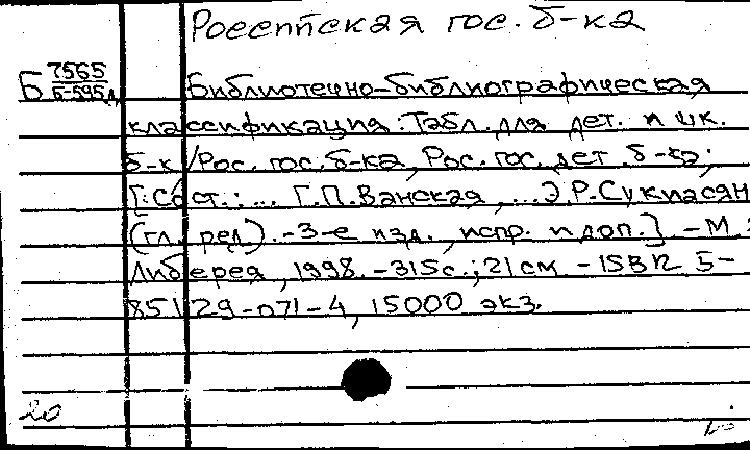 Российская гос. б-ка
Б 7565
Б-595д
Библиотечно-библиографическая
классификация: Табл. для дет. и шк.
б-к / Рос. гос. б-ка, Рос. гос. дет. б-ка;
[Сост.: ... Г.П. Ванская, ... Э.Р. Сукиасян
(гл. ред.). - 3-е изд., испр. и доп.] - М.:
Либерея, 1998. - 315 с.; 21 см - ISBN 5-
85129-071-4, 15000 экз.
20